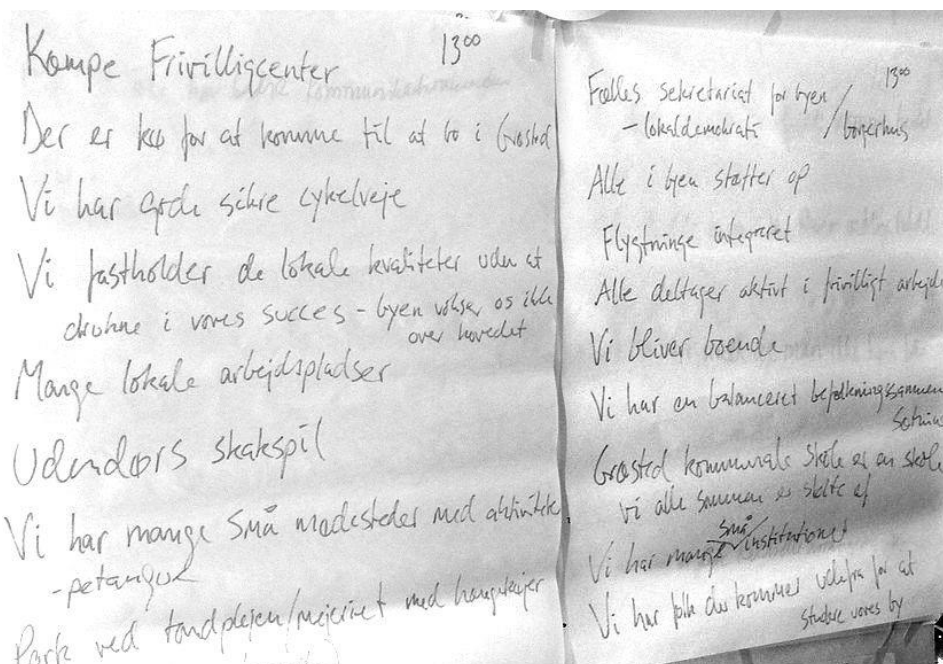 Kæmpe Frivilligcenter
13⁰⁰
Der er kø for at komme til at bo i Græsted
Vi har gode sikre cykelveje
Vi fastholder de lokale kvaliteter uden at
drukne i vores succes - byen vokser os ikke
over hovedet
Mange lokale arbejdspladser
Udendørs skakspil
Vi har mange små mødesteder med aktivitet
- petanque
Park ved tandplejen/mejeriet med hængekøjer
13⁰⁰
Fælles sekretariat for byen /
- lokaldemokrati / borgerhus
Alle i byen støtter op
Flygtninge integreret
Alle deltager aktivt i frivilligt arbejde
Vi bliver boende
Vi har en balanceret befolkningssammen
sætning
Græsted kommunale skole er en skole
vi alle sammen er stolte af
små
Vi har mange institutioner
Vi har folk der kommer udefra for at
studere vores by